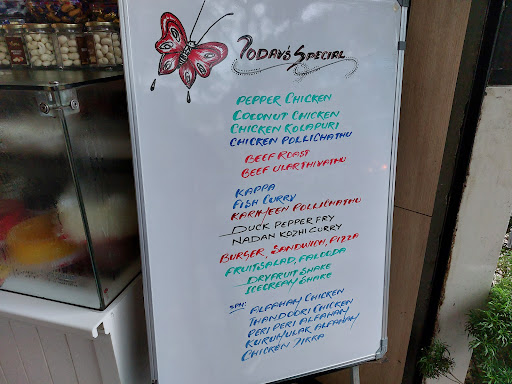 TODAY'S SPECIAL
PEPPER CHICKEN
COCONUT CHICKEN
CHICKEN KOLAPURI
CHICKEN POLLICHATHU
BEEF ROAST
BEEF ULARTHIYATHU
KAPPA
FISH CURRY
KARIMEEN POLLICHATHU
DUCK PEPPER FRY
NADAN KOZHI CURRY
BURGER, SANDWICH, PIZZA
FRUITSALAD, FALOODA
DRYFRUIT SHAKE
ICECREAM SHAKE
ALFAHAM CHICKEN
THANDOORI CHICKEN
PERI PERI ALFAHAM
KURUMULAK ALFAHAM
CHICKEN TIKKA